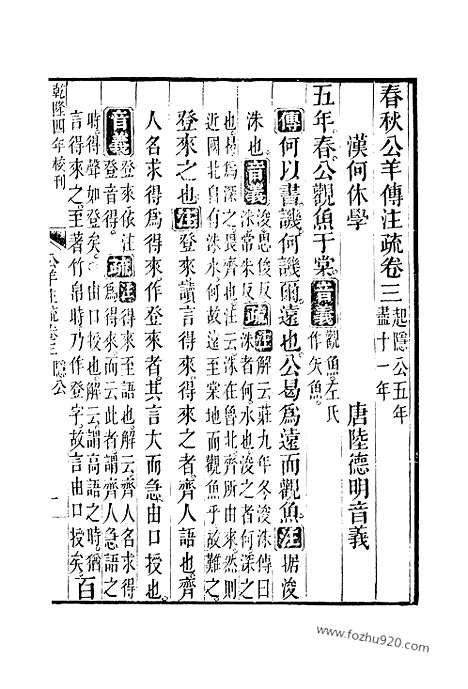 春秋公羊傳注疏卷三
起隱公五年
盡十一年
漢何休學　唐陸德明音義
五年春公觀魚于棠
音義
觀魚左氏
作矢魚
傳何以書譏何譏爾遠也公曷爲遠而觀魚注据浚
洙也
音義
浚思俊反
洙常朱反
疏
注解云莊九年冬浚洙傳曰
洙者何水也浚之者何深之
也曷爲深之畏齊也注云洙在魯北齊所由來然則
近國北自有洙水何故遠至棠地而觀魚乎故難之
登來之也注登來讀言得來得來之者齊人語也齊
人名求得爲得來作登來者其言大而急由口授也
音義
登來依注
登音得
疏
注得來至語也解云齊人名求得
爲得來而云此者謂齊人急語之
時得聲如登矣由口授也解云謂高語之時猶
言得來之至著竹帛時乃作登字故言由口授矣百
乾隆四年校刊
公羊注疏卷三隱公
一
www.fozhu920.com